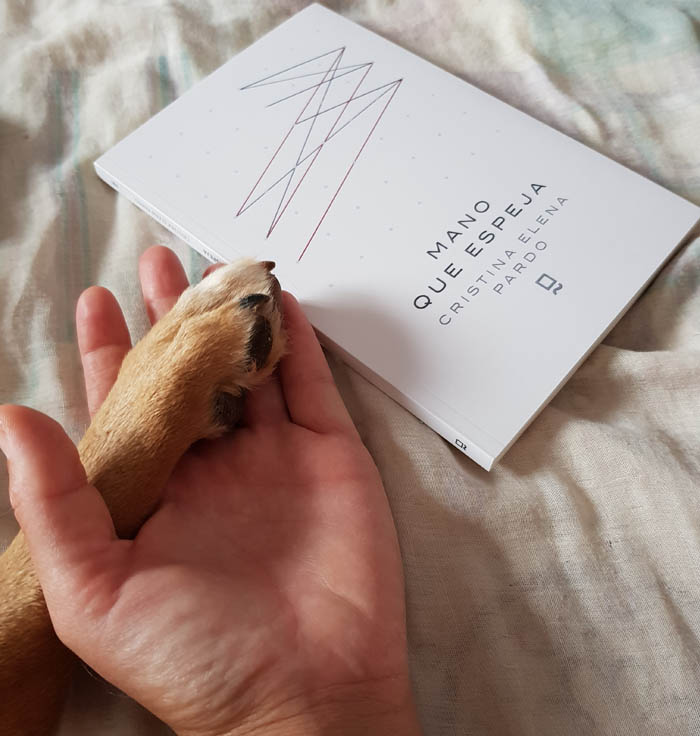 MANO
QUE ESPEJA
CRISTINA ELENA
PARDO